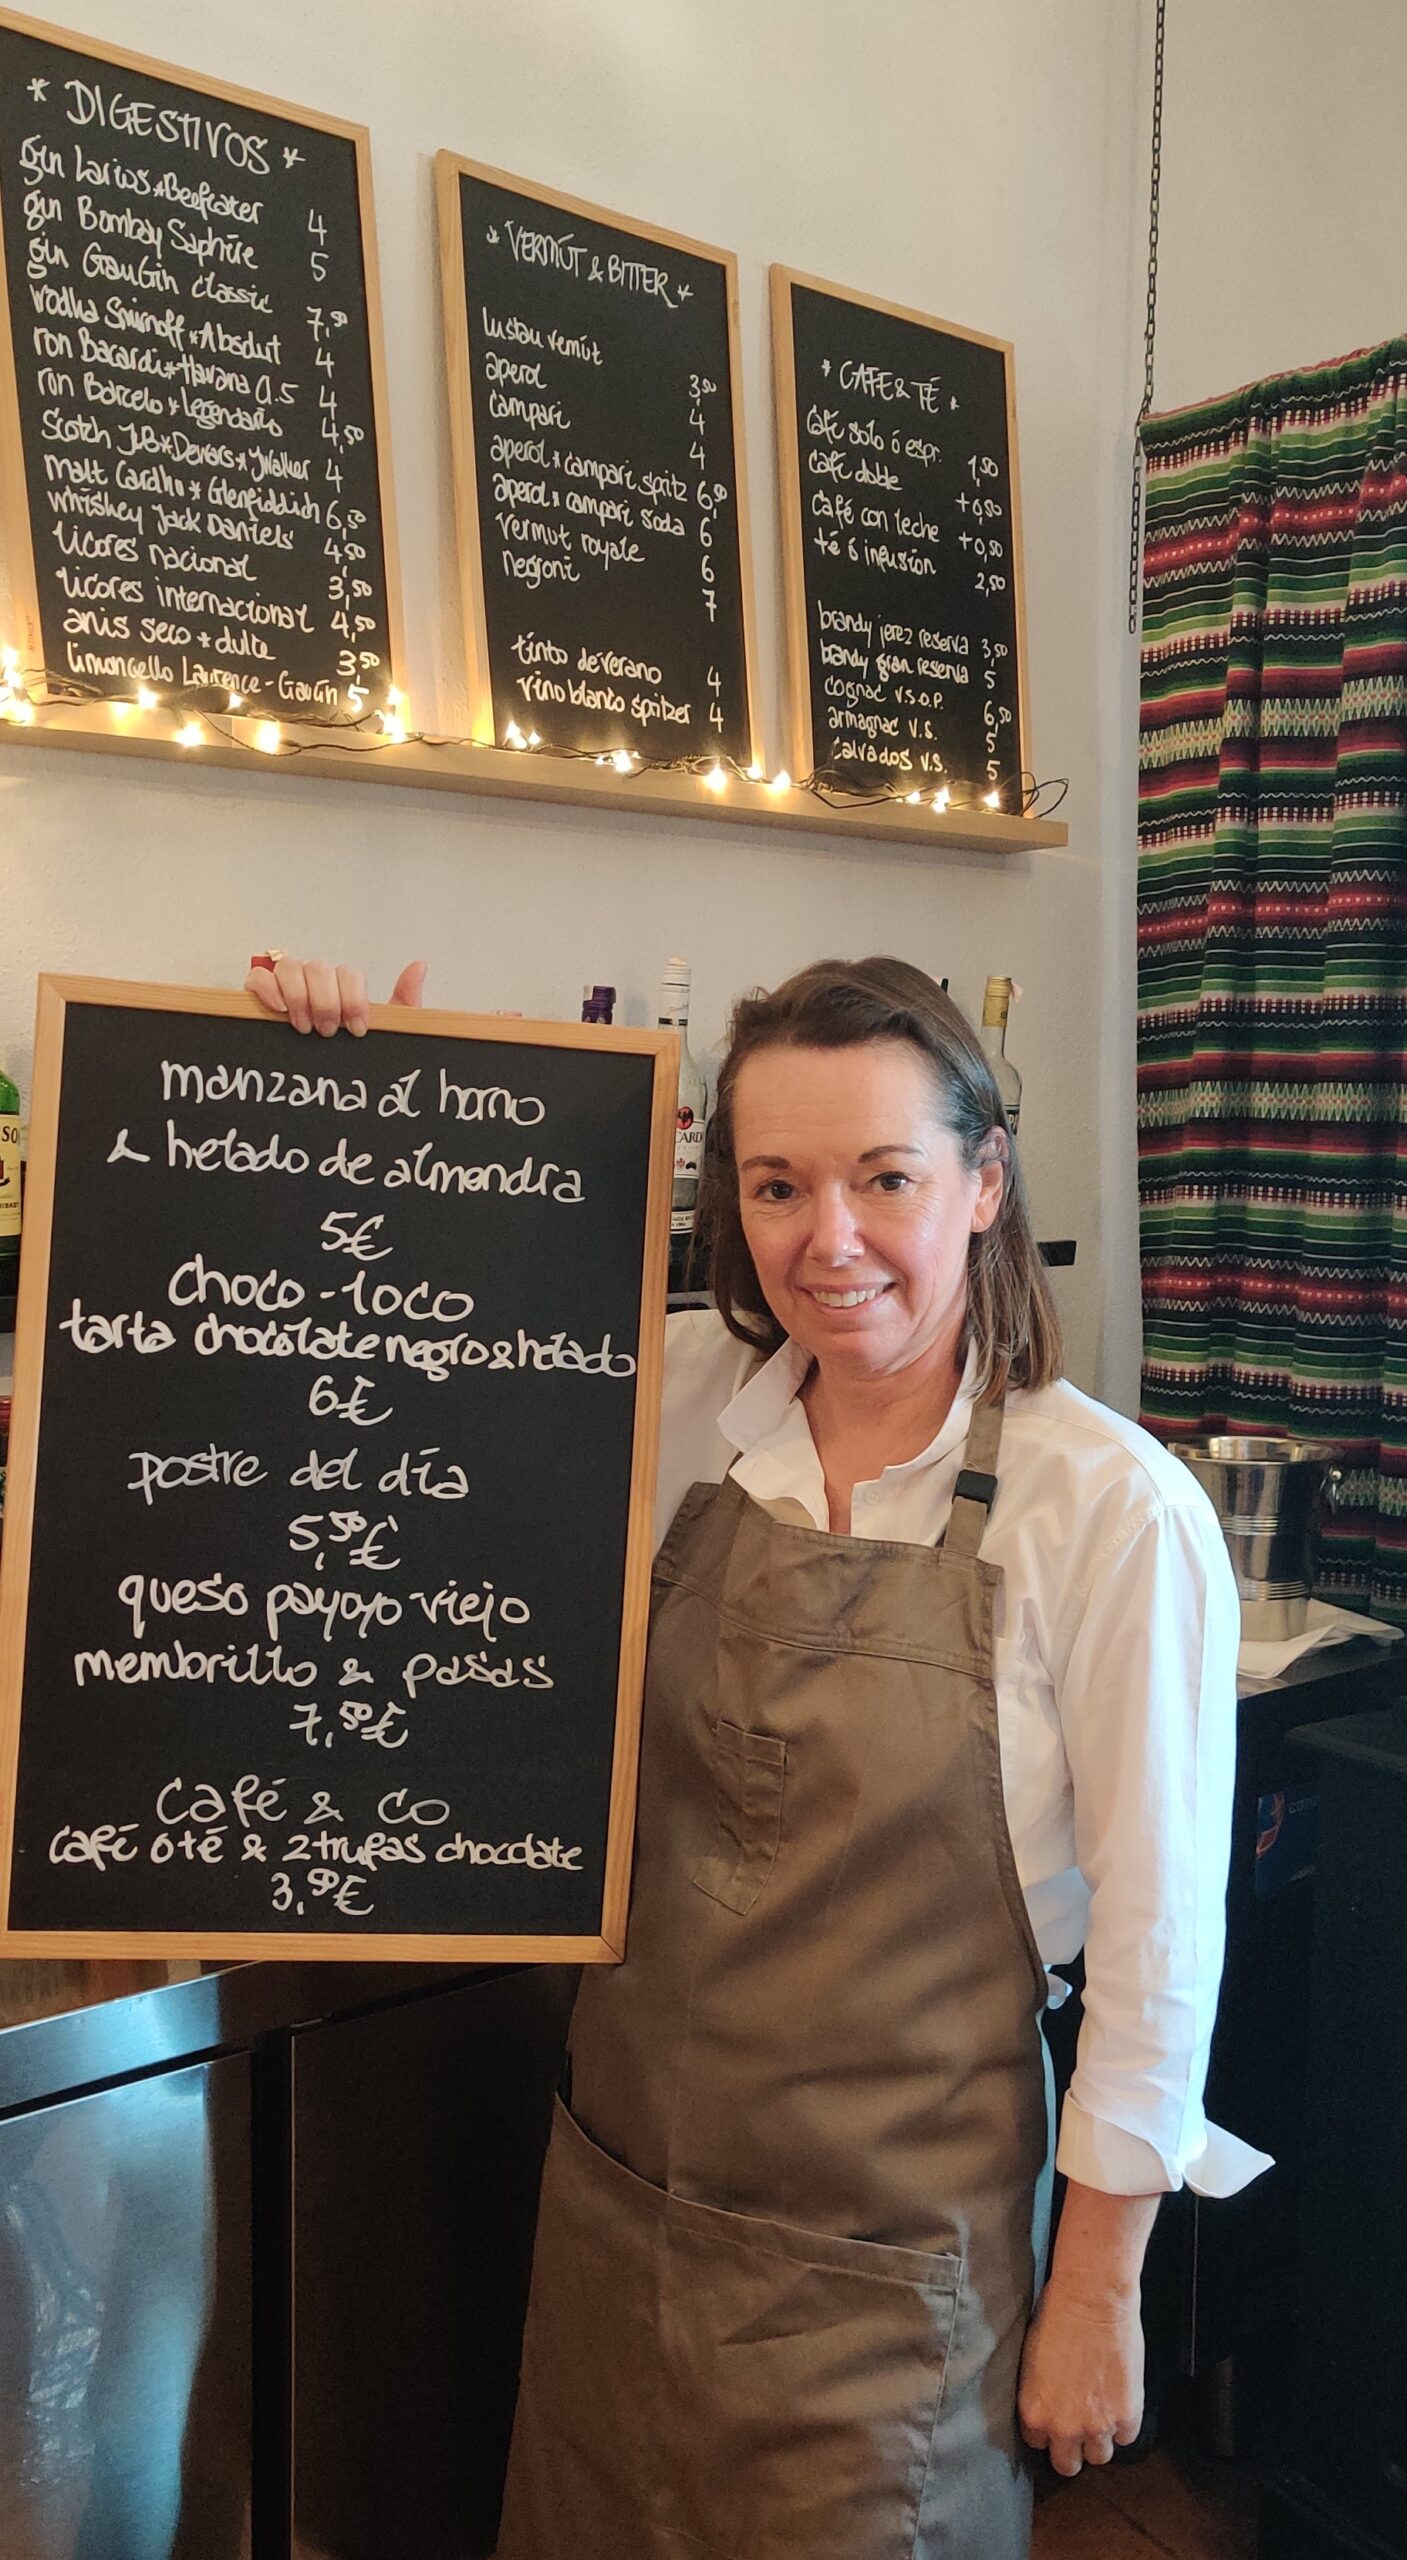 * DIGESTIVOS *
gin Larios * Beefeater 4
gin Bombay Saphire 5
gin GauGin classic 7,50
vodka Smirnoff * Absolut 4
ron Bacardi * Havana a.5 4
ron Barcelo * Legendario 4,50
Scotch J&B * Dewars * JWalker 4
malt Cardhu * Glenfiddich 6,50
whiskey Jack Daniels 4,50
licores nacional 3,50
licores internacional 4,50
anis seco * dulce 3,50
limoncello Laurence-Gaugin 5
* VERMÚT & BITTER *
lustau vermút 3,50
aperol 4
campari 4
aperol * campari spritz 6,50
aperol * campari soda 6
vermut royale 6
negroni 7
tinto de verano 4
vino blanco spritzer 4
* CAFE & TÉ *
café solo ó espr. 1,50
café doble +0,50
café con leche +0,50
té ó infusión 2,50
brandy jerez reserva 3,50
brandy gran reserva 5
cognac v.s.o.p. 6,50
armagnac v.s. 5
calvados v.s. 5
manzana al horno
& helado de almendra
5€
choco-loco
tarta chocolate negro & helado
6€
postre del día
5,50€
queso payoyo viejo
membrillo & pasas
7,50€
Café & co
café o té & 2 trufas chocolate
3,50€